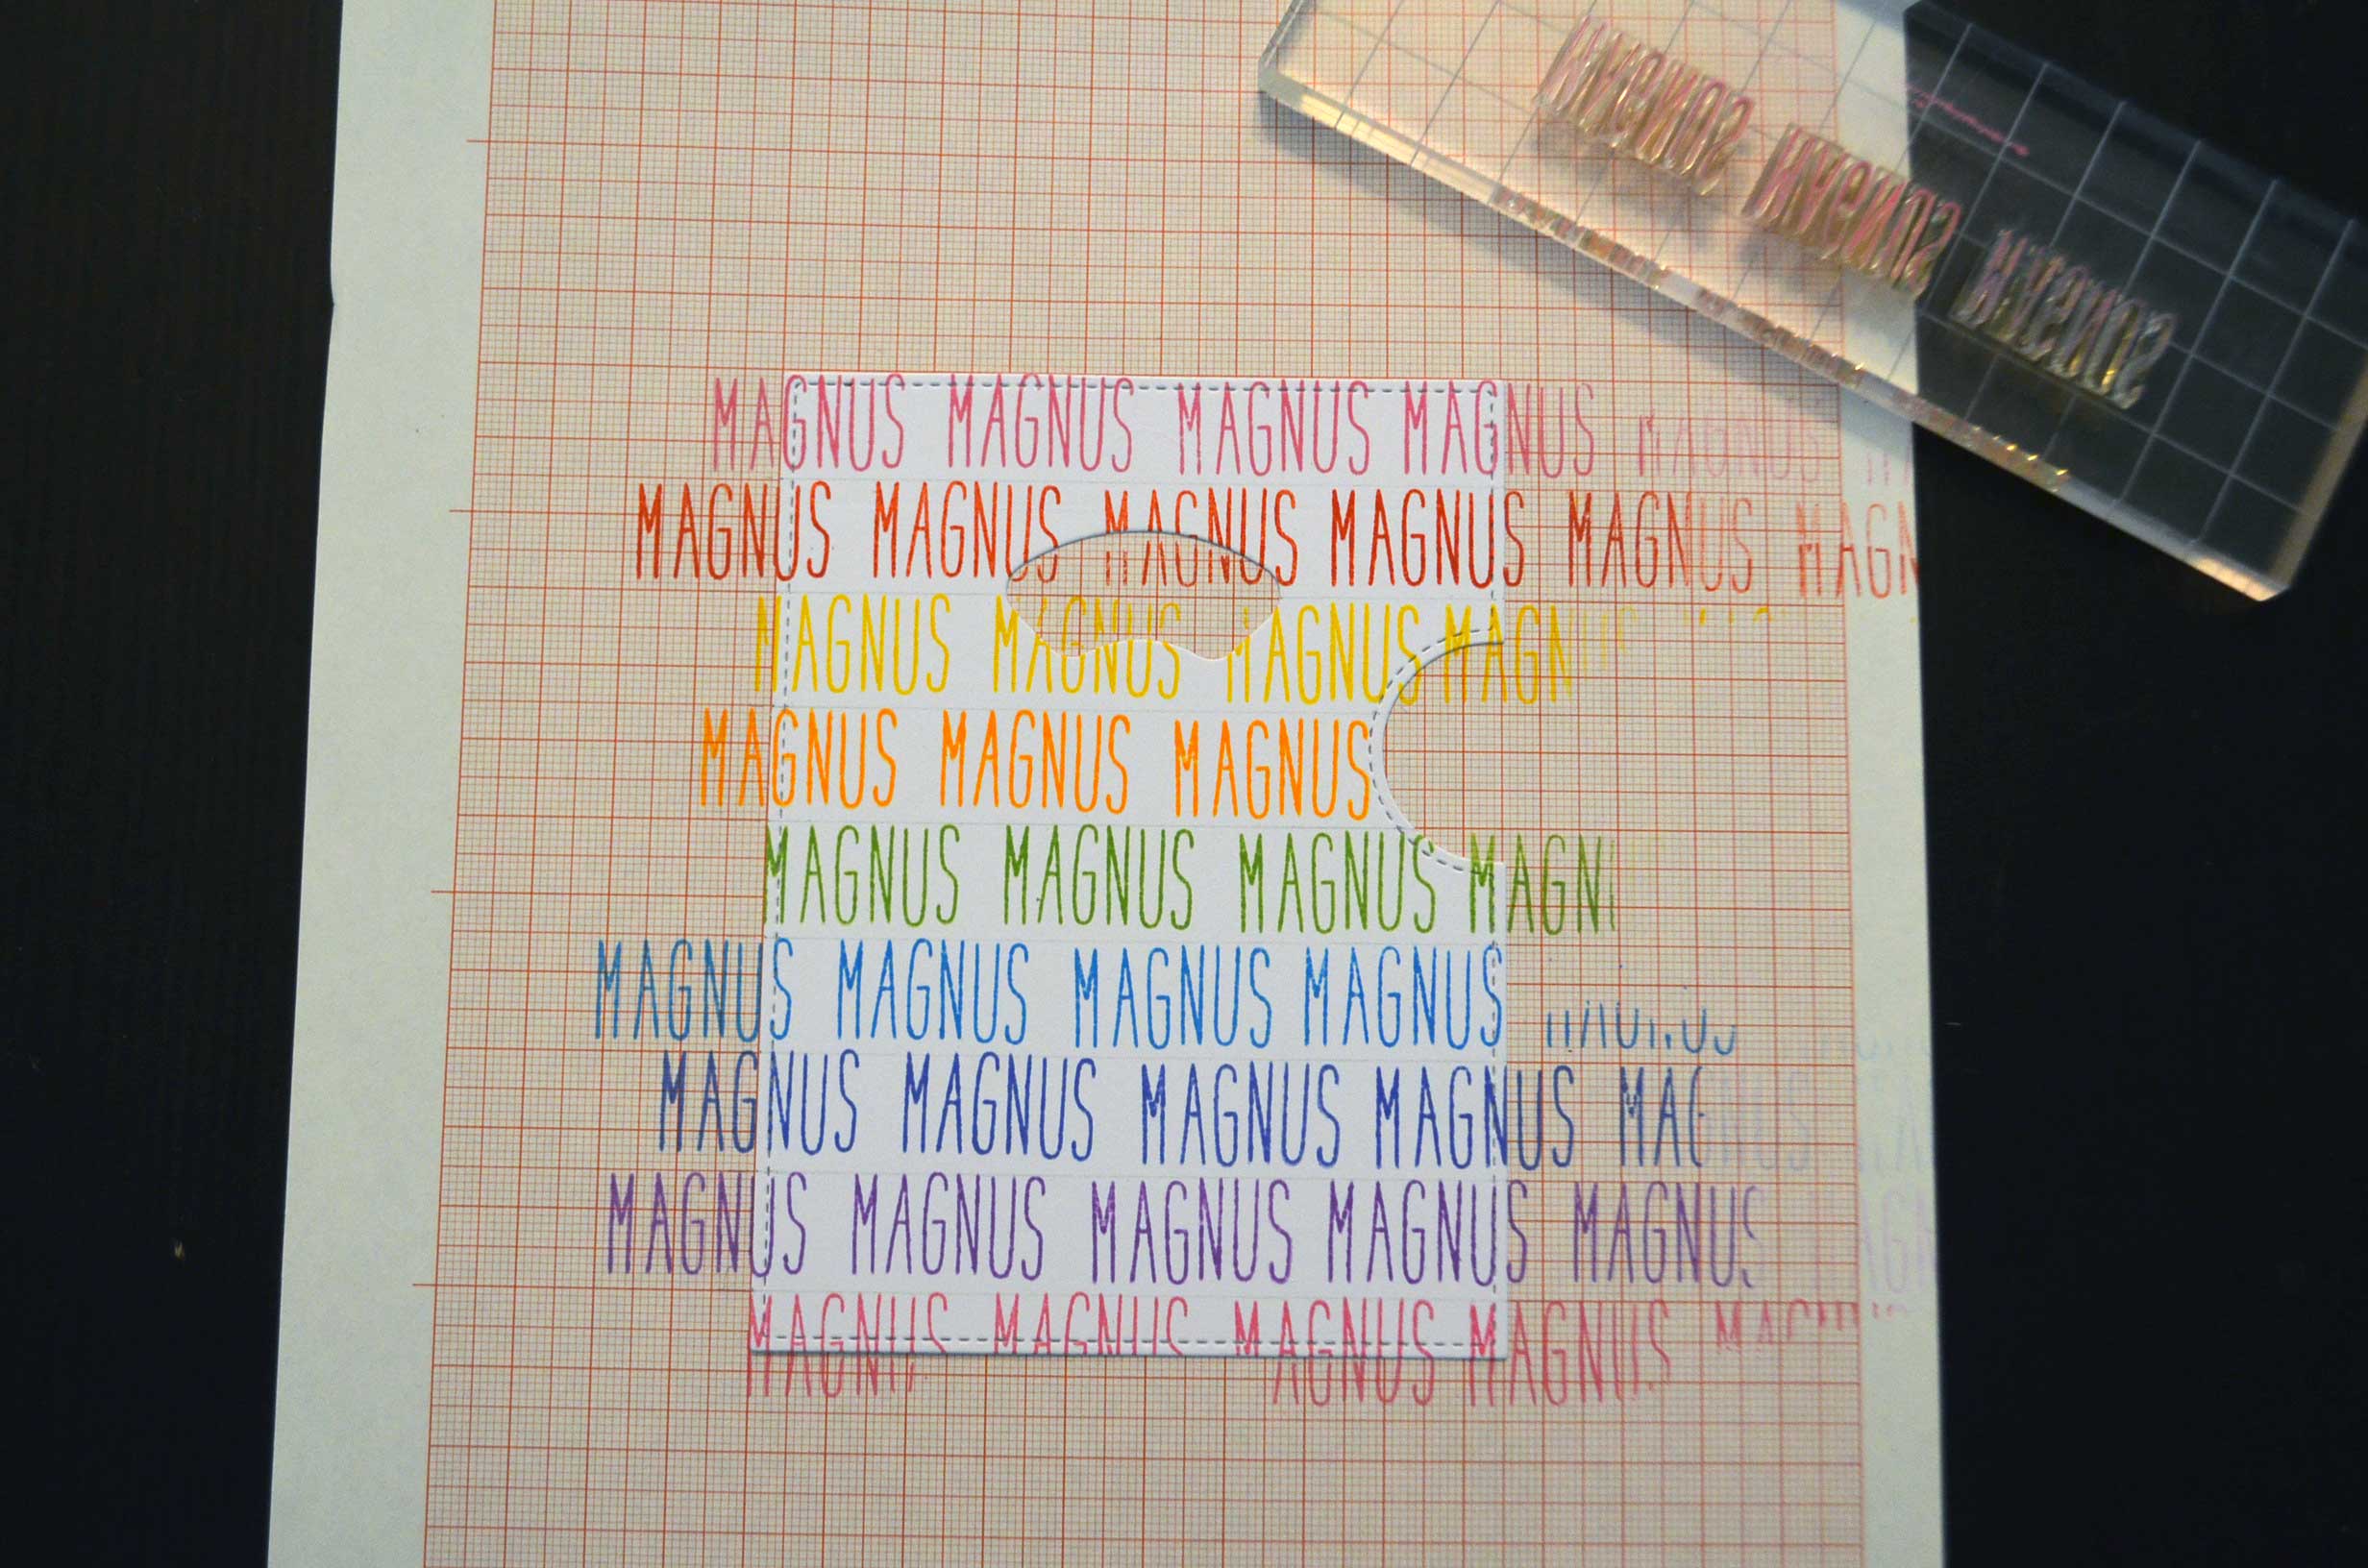 MAGNUS MAGNUS MAGNUS MAGNUS MAGNUS
MAGNUS MAGNUS MAGNUS MAGNUS MAGNUS MAGN
MAGNUS MAGNUS MAGNUS MAGN
MAGNUS MAGNUS MAGNUS
MAGNUS MAGNUS MAGNUS MAGN
MAGNUS MAGNUS MAGNUS MAGNUS
MAGNUS MAGNUS MAGNUS MAGNUS MAG
MAGNUS MAGNUS MAGNUS MAGNUS MAGNUS
MAGNUS MAGNUS MAGNUS MAGNUS